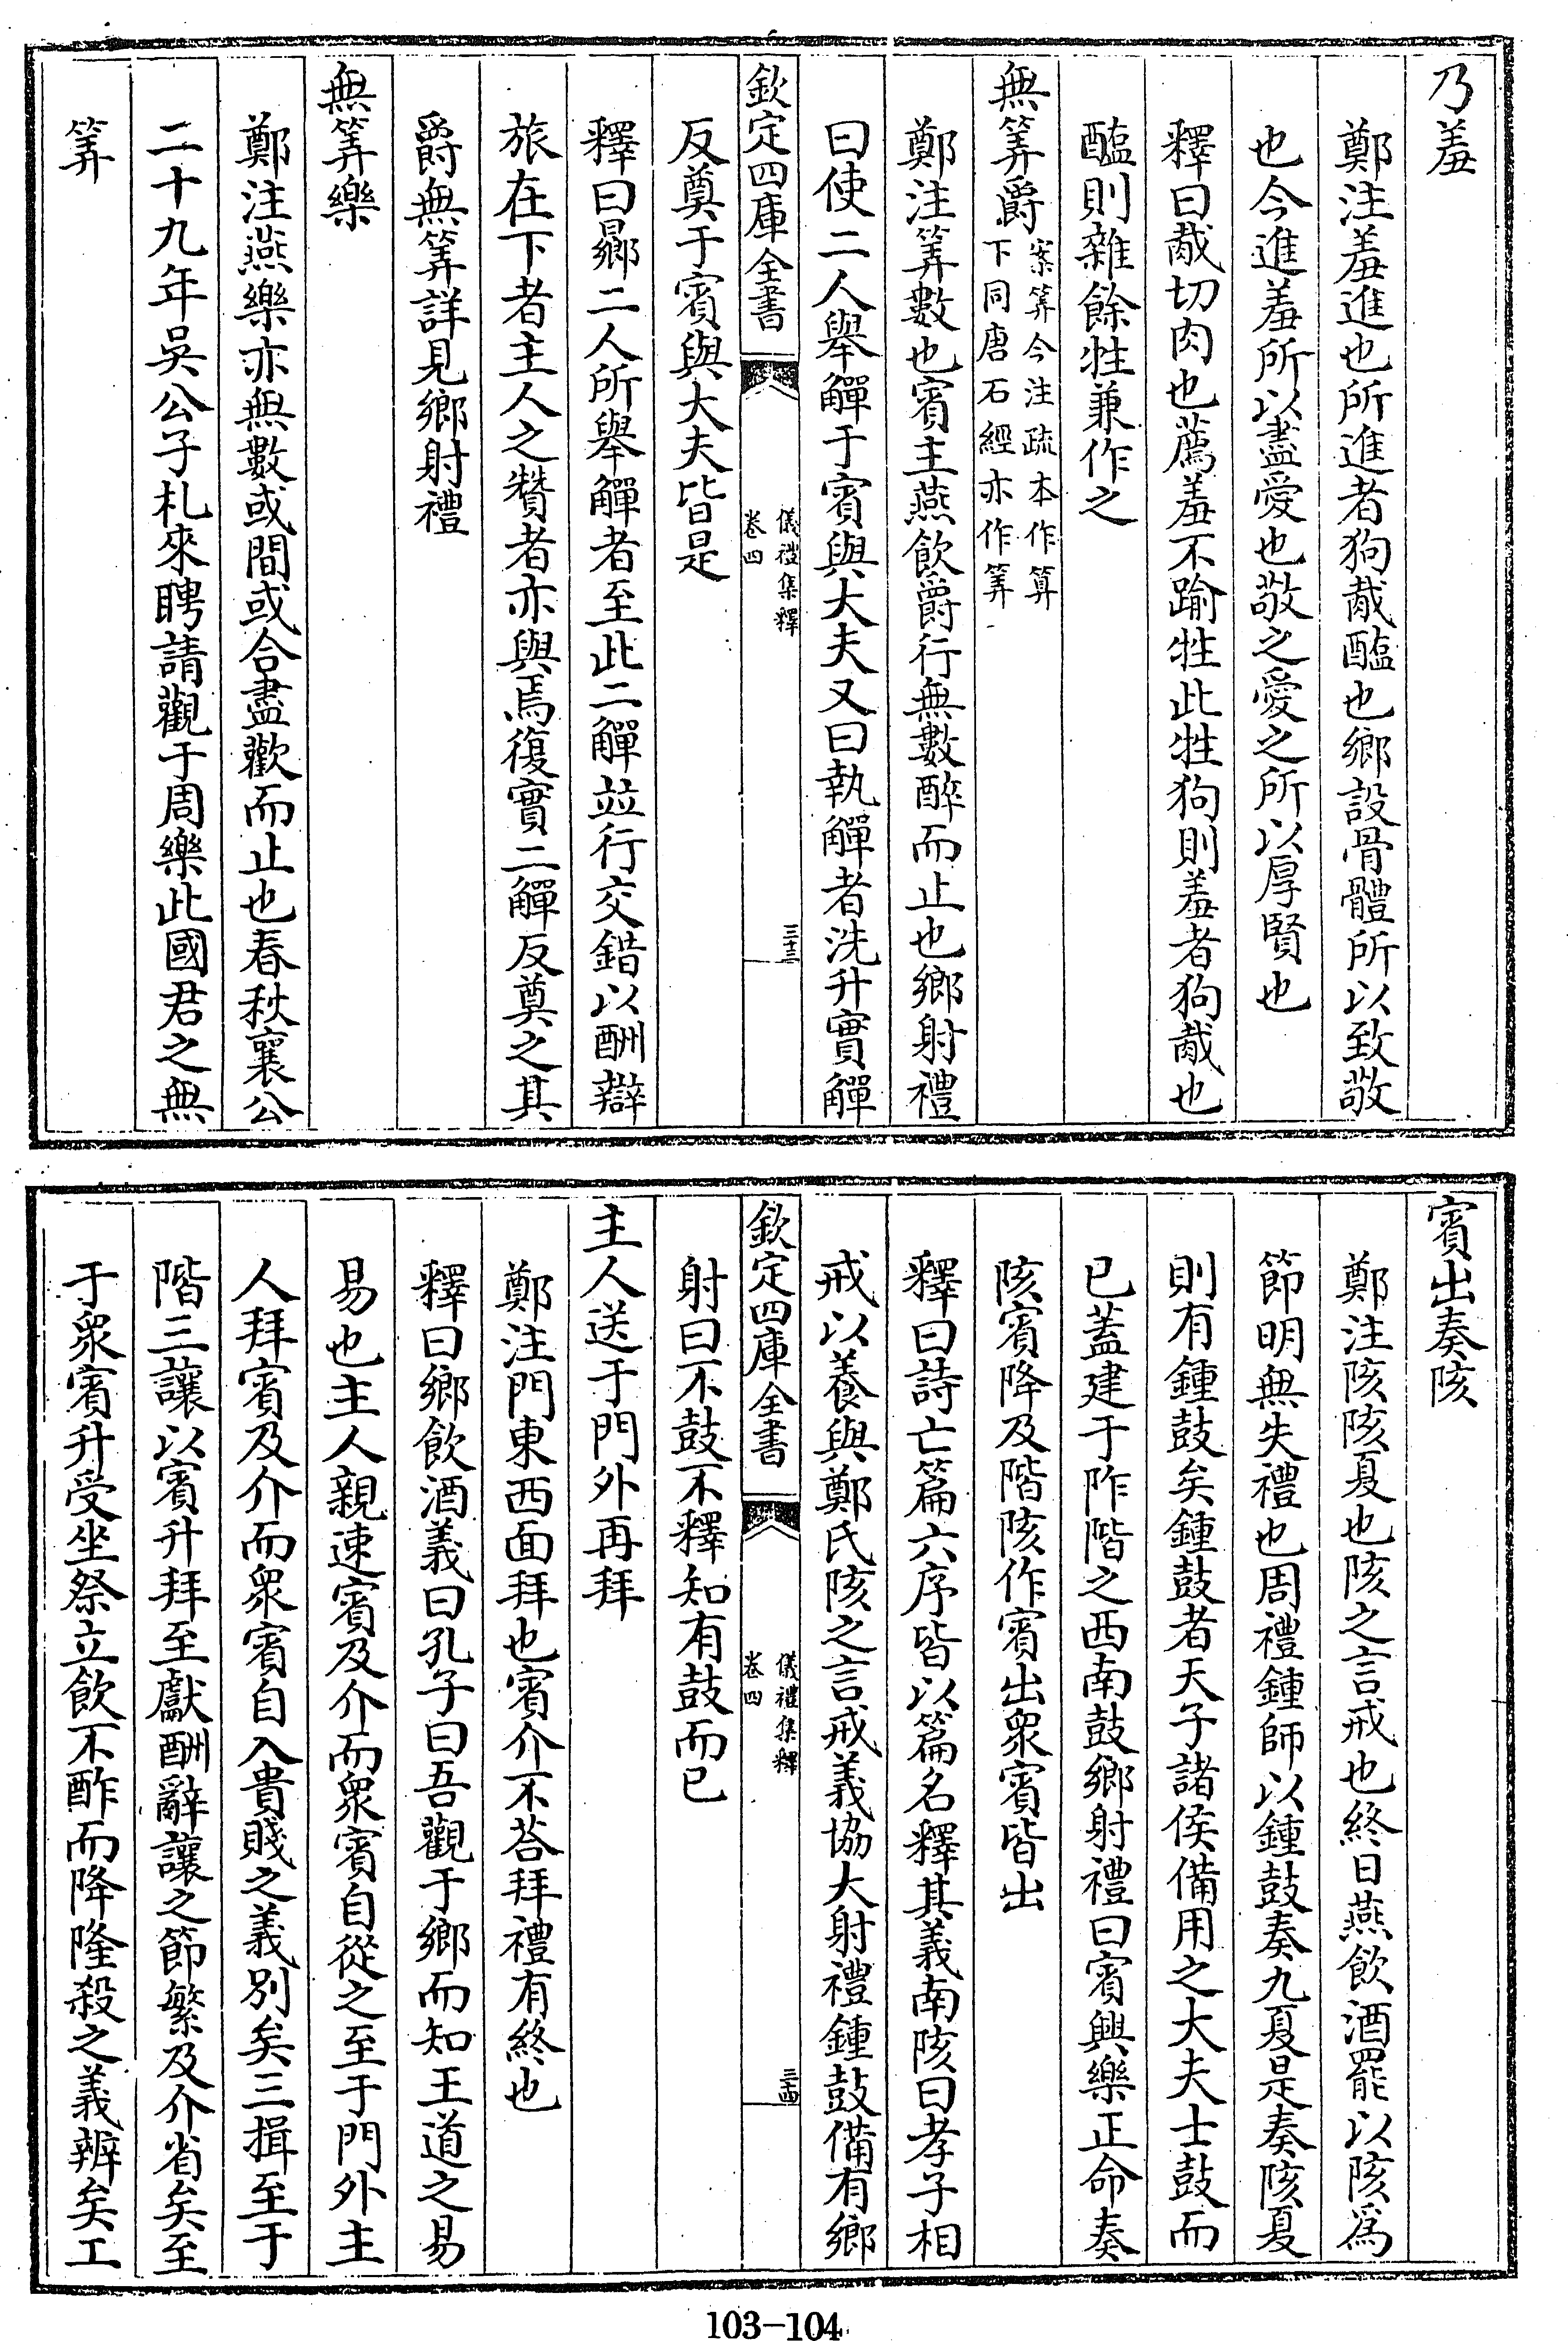 乃羞
鄭注羞進也所進者狗胾醢也鄉設骨體所以致敬
也今進羞所以盡愛也敬之愛之所以厚賢也
釋曰胾切肉也薦羞不踰牲此牲狗則羞者狗胾也
醢則雜餘牲兼作之
無筭爵案筭今注疏本作算下同唐石經亦作筭
鄭注筭數也賓主燕飲爵行無數醉而止也鄉射禮
曰使二人舉觶于賓與大夫又曰執觶者洗升實觶
欽定四庫全書
儀禮集釋
卷四
三十三
反奠于賓與大夫皆是
釋曰曏二人所舉觶者至此二觶並行交錯以酬辯
旅在下者主人之贊者亦與焉復實二觶反奠之其
爵無筭詳見鄉射禮
無筭樂
鄭注燕樂亦無數或間或合盡歡而止也春秋襄公
二十九年吳公子札來聘請觀于周樂此國君之無
筭
賓出奏陔
鄭注陔陔夏也陔之言戒也終日燕飲酒罷以陔爲
節明無失禮也周禮鍾師以鍾鼓奏九夏是奏陔夏
則有鍾鼓矣鍾鼓者天子諸侯備用之大夫士鼓而
已蓋建于阼階之西南鼓鄉射禮曰賓興樂正命奏
陔賓降及階陔作賓出衆賓皆出
釋曰詩亡篇六序皆以篇名釋其義南陔曰孝子相
戒以養與鄭氏陔之言戒義協大射禮鍾鼓備有鄉
欽定四庫全書
儀禮集釋
卷四
三十四
射曰不鼓不釋知有鼓而已
主人送于門外再拜
鄭注門東西面拜也賓介不荅拜禮有終也
釋曰鄉飲酒義曰孔子曰吾觀于鄉而知王道之易
易也主人親速賓及介而衆賓自從之至于門外主
人拜賓及介而衆賓自入貴賤之義別矣三揖至于
階三讓以賓升拜至獻酬辭讓之節繁及介省矣至
于衆賓升受坐祭立飲不酢而降隆殺之義辨矣工
103-104